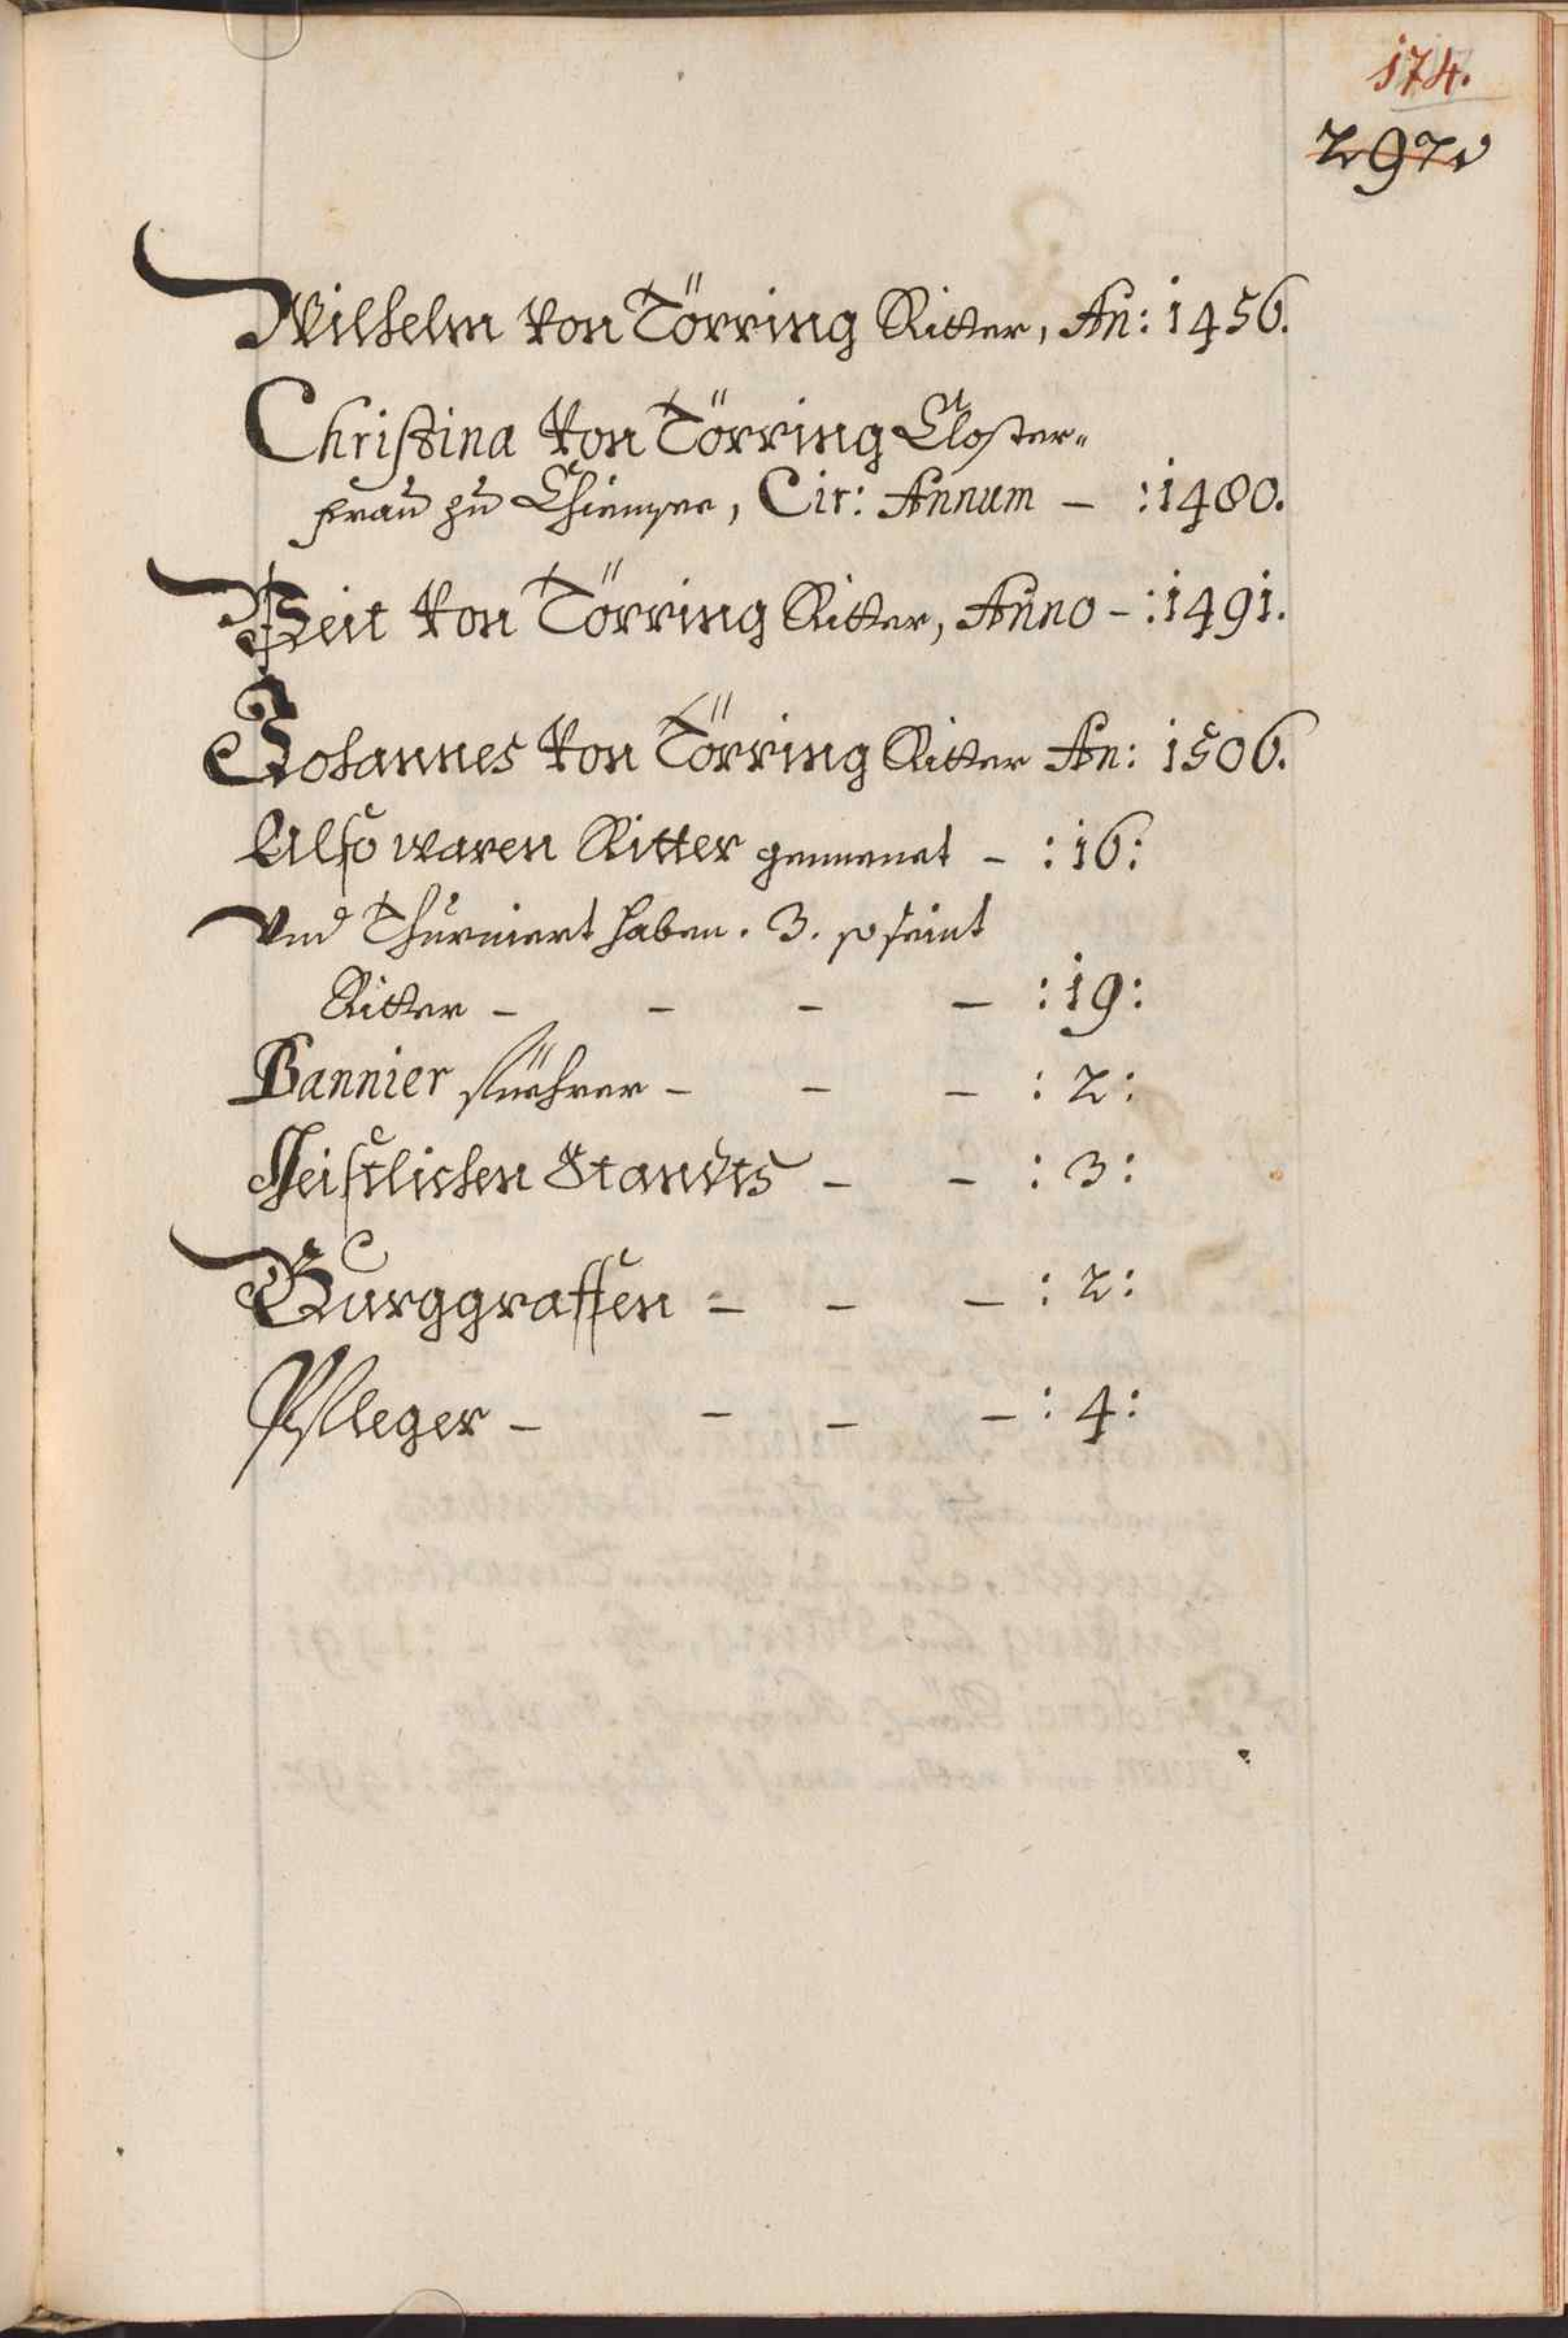 174.
297
Wilhelm von Törring Ritter, An: 1456.
Christina von Törring Closter-
frau zu Chiemsee, Cir: Annum - :1480.
Veit von Törring Ritter, Anno - :1491.
Johannes von Törring Ritter An: 1506.
Also waren Ritter genennet - :16:
Vnd Thurniert haben. 3. so seint
Ritter - - - - :19:
Bannier füehrer - - - : 2:
Geistlichen Standts - - : 3:
Burggraffen - - - : 2:
Pfleger - - - - : 4: